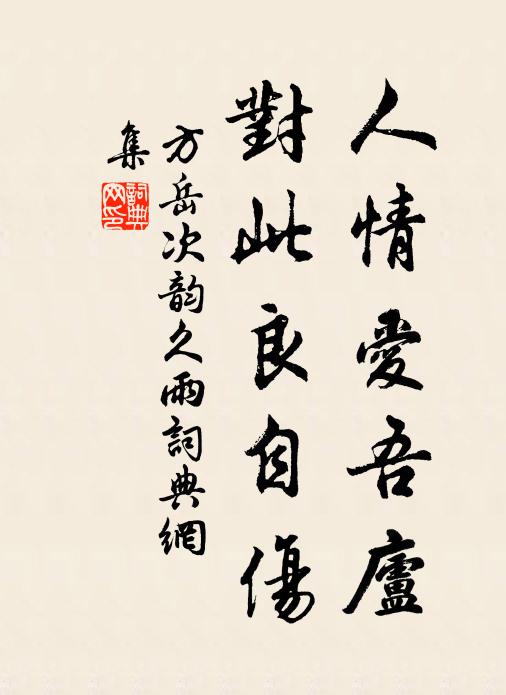 人情愛吾廬
對此良自傷
方岳次韵久雨詞典網
集
詞典網印